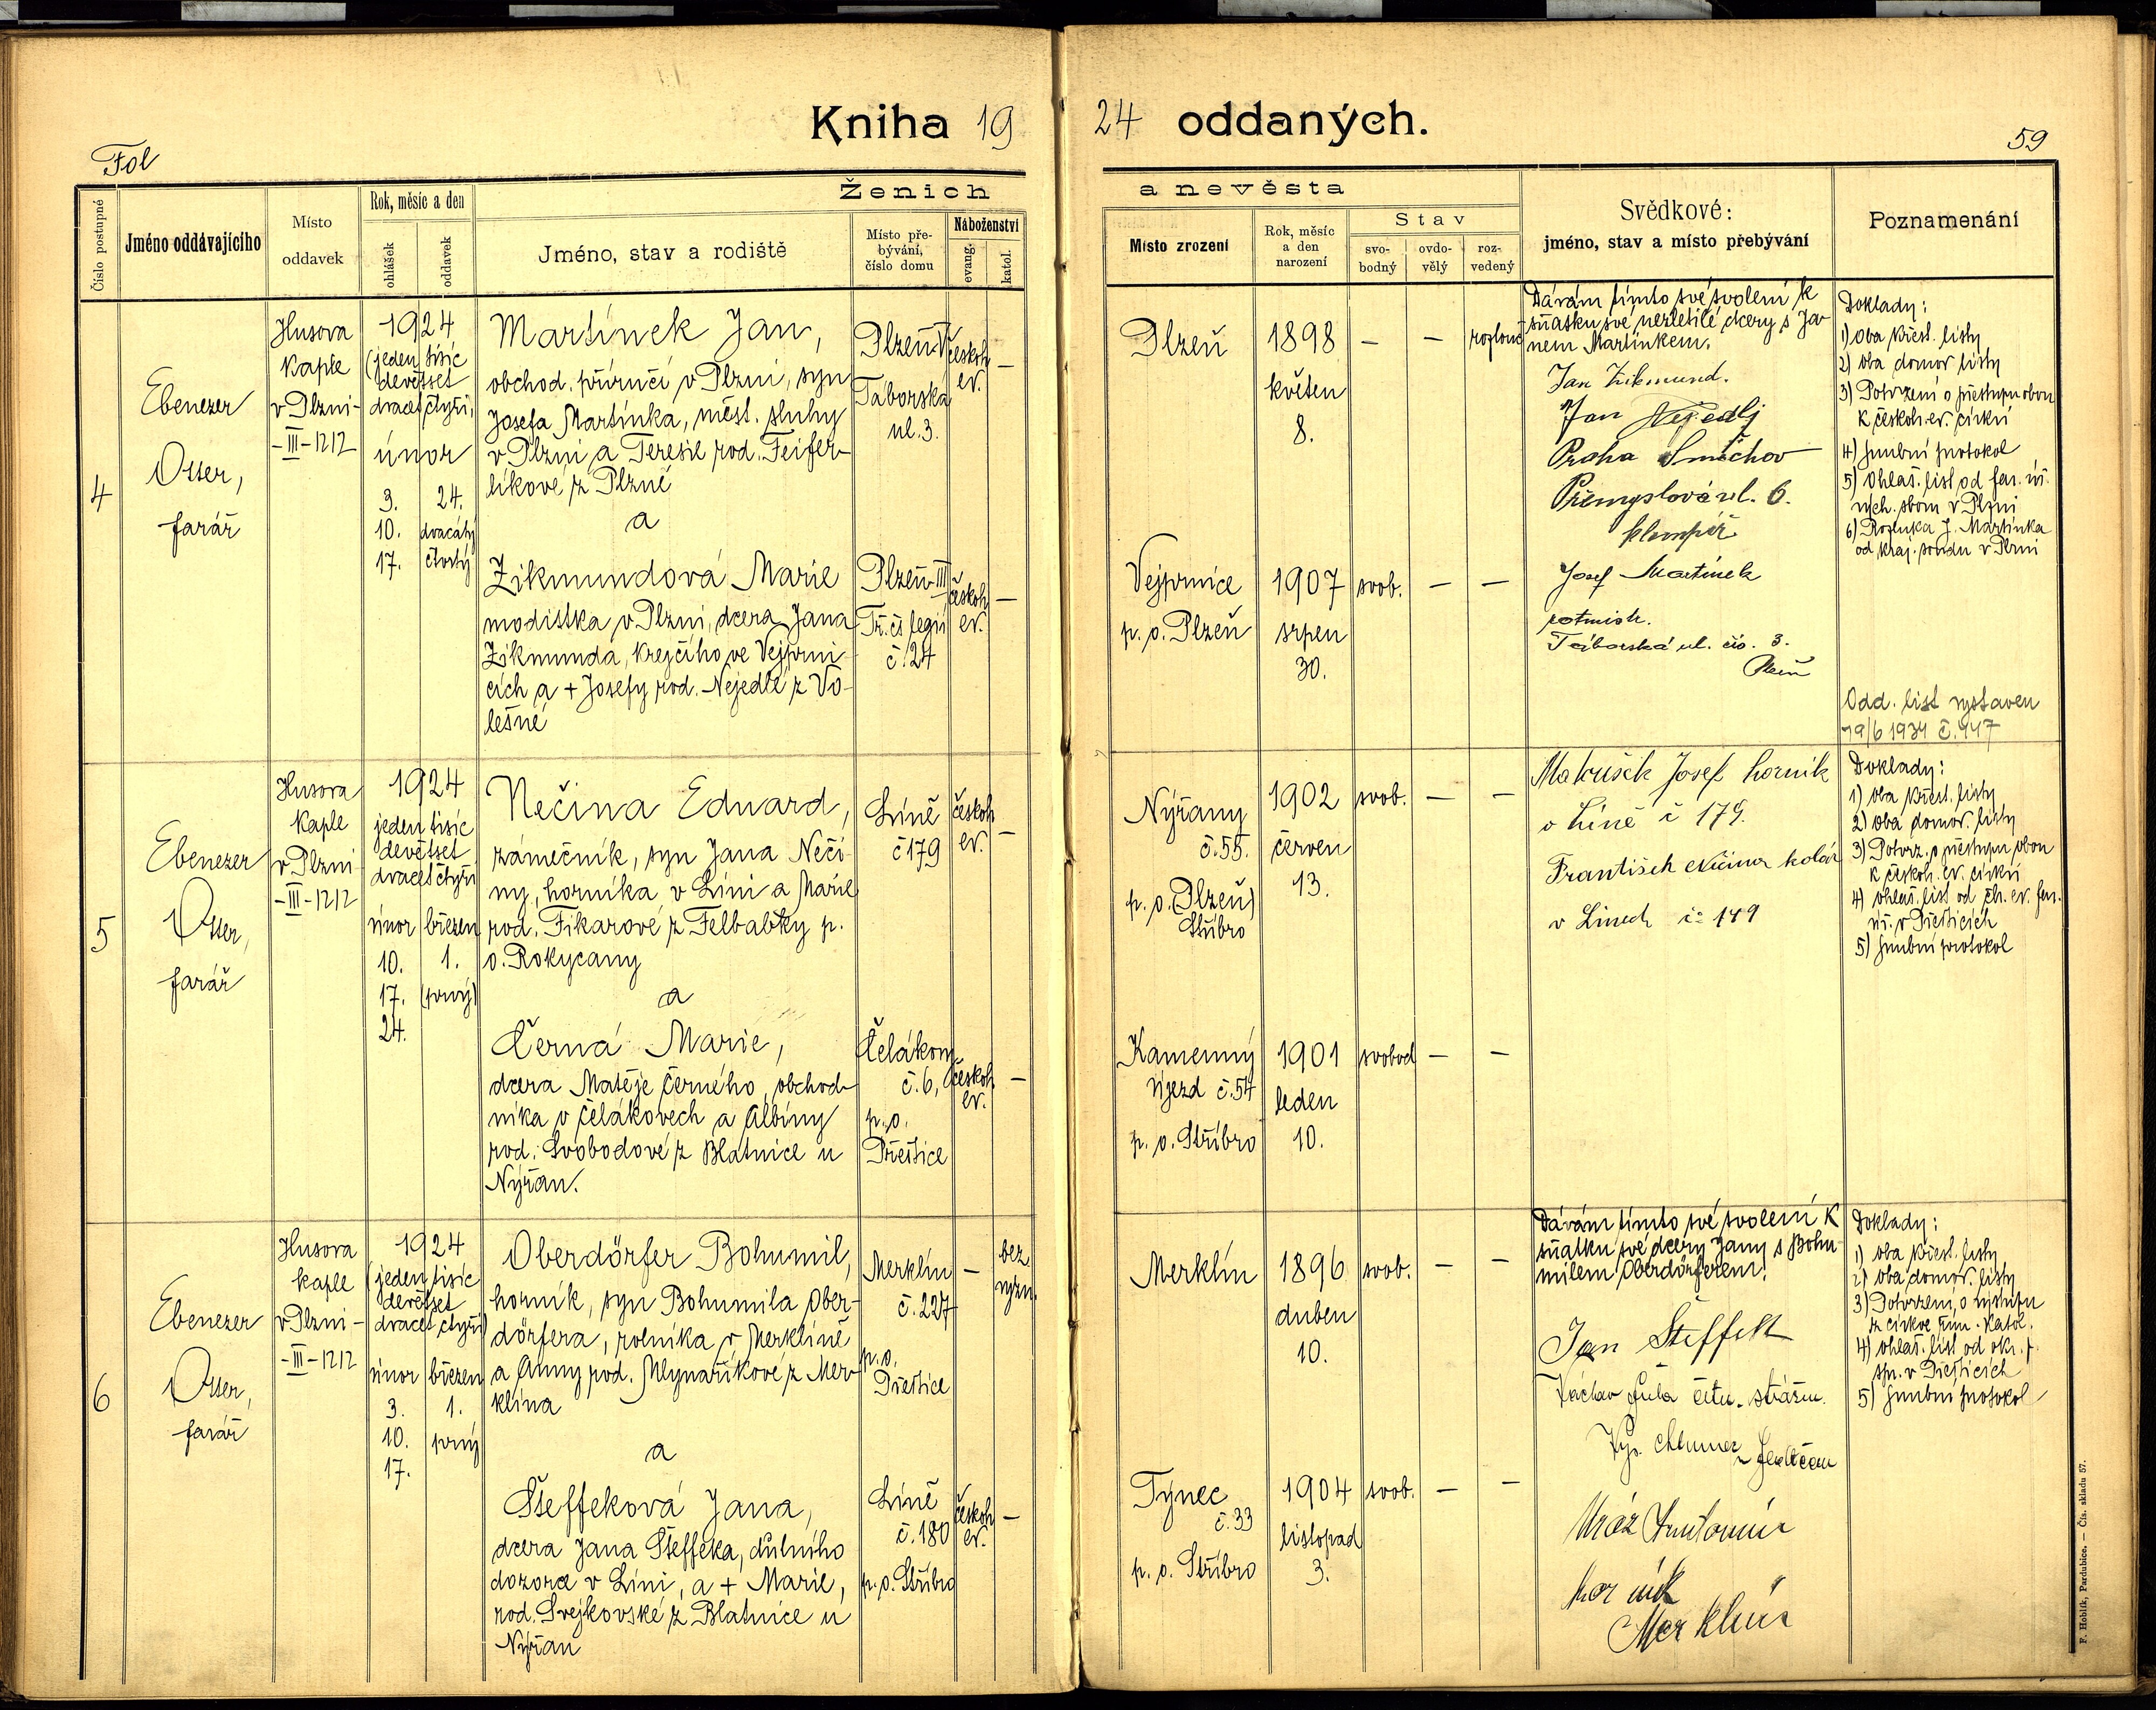 Kniha 19
24 oddaných.
Fol
59
Ženich
a nevěsta
Číslo postupné
Jméno oddávajícího
Místo
oddavek
Rok, měsíc a den
ohlášek
oddavek
Jméno, stav a rodiště
Místo pře-
bývání,
číslo domu
Náboženství
evang.
katol.
Místo zrození
Rok, měsíc
a den
narození
Stav
svo-
bodný
ovdo-
vělý
roz-
vedený
Svědkové:
jméno, stav a místo přebývání
Poznamenání
4
Ebenezer
Otter,
farář
Husova
kaple
v Plzni-
-III-1212
1924
(jeden tisíc
devětset
dvacet čtyři)
únor
3.
10.
17.
24.
dvacátý
čtvrtý
Martínek Jan,
obchod. příručí v Plzni, syn
Josefa Martínka, měst. sluhy
v Plzni a Teresie rod. Feifer-
líkové z Plzně
a
Zikmundová Marie
modistka v Plzni, dcera Jana
Zikmunda, krejčího ve Vejprni-
cích a + Josefy rod. Nejedlé z Vo-
lešné
Plzeň-V
Táborská
ul. 3.
českob.
ev.
—
Plzeň-III
Tř. čs legií
č. 24
českob.
ev.
—
Plzeň
1898
květen
8.
—
—
rozlouč.
Vejprnice
p. o. Plzeň
1907
srpen
30.
svob.
—
—
Dávám tímto své svolení k
sňatku své nezletilé dcery s Ja-
nem Martínkem.
Jan Zikmund.
Jan Nejedlý
Praha Smíchov
Přemyslova ul. 6.
klempíř
Josef Martínek
rotmistr.
Táborská ul. čís. 3.
Plzeň
Doklady:
1) Oba křest. listy
2) oba domov. listy
3) Potvrzení o přestupu obou
k českob. ev. církvi
4) smluvní protokol
5) Ohláš. list od far. úř.
6) Rozluka J. Martínka
od kraj. soudu v Plzni
Odd. list vystaven
19/6 1934 č. 447
5
Ebenezer
Otter,
farář
Husova
kaple
v Plzni
-III-1212
1924
jeden tisíc
devětset
dvacet čtyři
únor
10.
17.
24.
březen
1.
(prvý)
Nečina Eduard,
zámečník, syn Jana Neči-
ny, horníka v Líni a Marie
rod. Fikarové z Felbabky p.
o. Rokycany
a
Černá Marie,
dcera Matěje Černého, obchod-
níka v Čelákovech a Albíny
rod. Svobodové z Blatnice u
Nýřan.
Líně
č 179
českob.
ev.
—
Čelákovy
č. 6,
p. o.
Přeštice
českob.
ev.
—
Nýřany
č. 55.
p. o. (Plzeň)
Stříbro
1902
červen
13.
svob.
—
—
Kamenný
Újezd č. 54
p. o. Stříbro
1901
leden
10.
svobod
—
—
Josef horník
v Líně č 179.
František Nečina kolář
v Linech čís 149
Doklady:
1) oba křest. listy
2) oba domov. listy
3) Potvrz. o přestupu obou
k českob. ev. církvi
4) ohláš. list od čb. ev. far.
úř. v Přešticích
5) smluvní protokol
6
Ebenezer
Otter,
farář
Husova
kaple
v Plzni-
-III-1212
1924
(jeden tisíc
devětset
dvacet čtyři)
únor
3.
10.
17.
březen
1.
prvý
Oberdörfer Bohumil,
horník, syn Bohumila Ober-
dörfera, rolníka v Merklíně
a Anny rod. Mlynaříkové z Mer-
klína
a
Šteffeková Jana,
dcera Jana Šteffeka, důlního
dozorce v Líni, a + Marie,
rod. Svejkovské z Blatnice u
Nýřan
Merklín
č. 227
p. o.
Přeštice
—
bez
vyzn.
Líně
č. 180
p. o. Stříbro
českob.
ev.
—
Merklín
1896
duben
10.
svob.
—
—
Týnec
č. 33
p. o. Stříbro
1904
listopad
3.
svob.
—
—
Dávám tímto své svolení k
sňatku své dcery Jany s Bohu-
milem Oberdörferem.
Jan Šteffek
Václav četn. strážm.
Mráz Antonín
horník
Merklín
Doklady:
1) oba křest. listy
2) oba domov. listy
3) Potvrzení o výstupu
z církve řím. katol.
4) ohláš. list od okr. p.
spr. v Přešticích
5) smluvní protokol
F. Hoblík, Pardubice. — Čís. skladu 57.